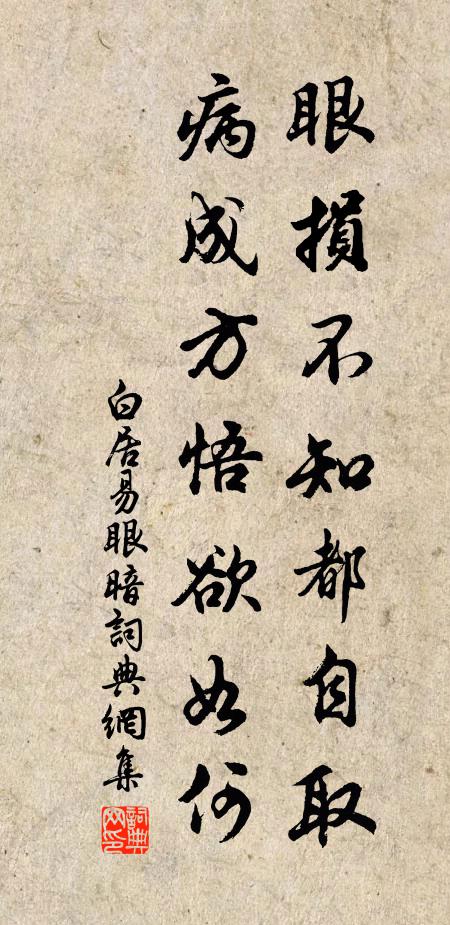 眼損不知都自取
病成方悟欲如何
白居易眼暗詞典網集
詞典
網印